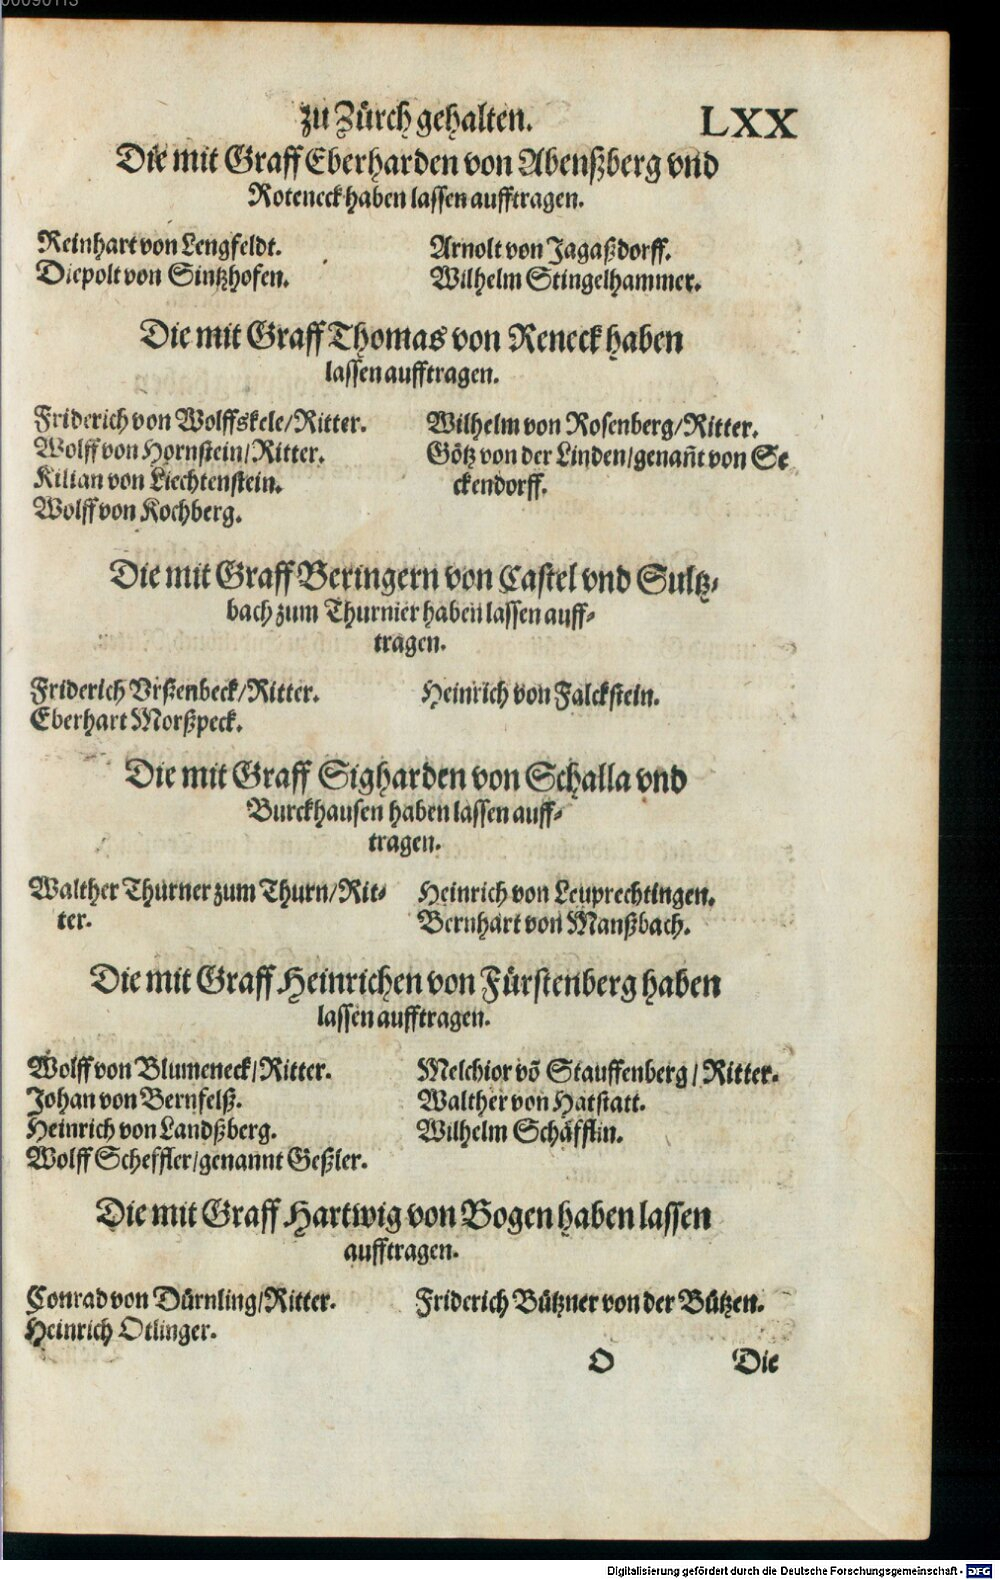 zu Zürch gehalten. LXX
Die mit Graff Eberharden von Abenßberg vnd
Roteneck haben lassen aufftragen.
Reinhart von Lengfeldt.
Diepolt von Sintzhofen.
Arnolt von Jagaßdorff.
Wilhelm Stingelhammer.
Die mit Graff Thomas von Reneck haben
lassen aufftragen.
Friderich von Wolffskele/Ritter.
Wolff von Hornstein/Ritter.
Kilian von Liechtenstein.
Wolff von Kochberg.
Wilhelm von Rosenberg/Ritter.
Götz von der Linden/genañt von Se
ckendorff.
Die mit Graff Beringern von Castel vnd Sultz-
bach zum Thurnier haben lassen auff-
tragen.
Friderich Vrßenbeck/Ritter.
Eberhart Morßpeck.
Heinrich von Falckstein.
Die mit Graff Sigharden von Schalla vnd
Burckhausen haben lassen auff-
tragen.
Walther Thurner zum Thurn/Rit-
ter.
Heinrich von Leuprechtingen.
Bernhart von Manßbach.
Die mit Graff Heinrichen von Fürstenberg haben
lassen aufftragen.
Wolff von Blumeneck/Ritter.
Johan von Bernfelß.
Heinrich von Landßberg.
Wolff Scheffler/genannt Geßler.
Melchior võ Stauffenberg/Ritter.
Walther von Hatstatt.
Wilhelm Schäfflin.
Die mit Graff Hartwig von Bogen haben lassen
aufftragen.
Conrad von Dürnling/Ritter.
Heinrich Otlinger.
Friderich Bützner von der Bützen.
O Die
Digitalisierung gefördert durch die Deutsche Forschungsgemeinschaft - DFG